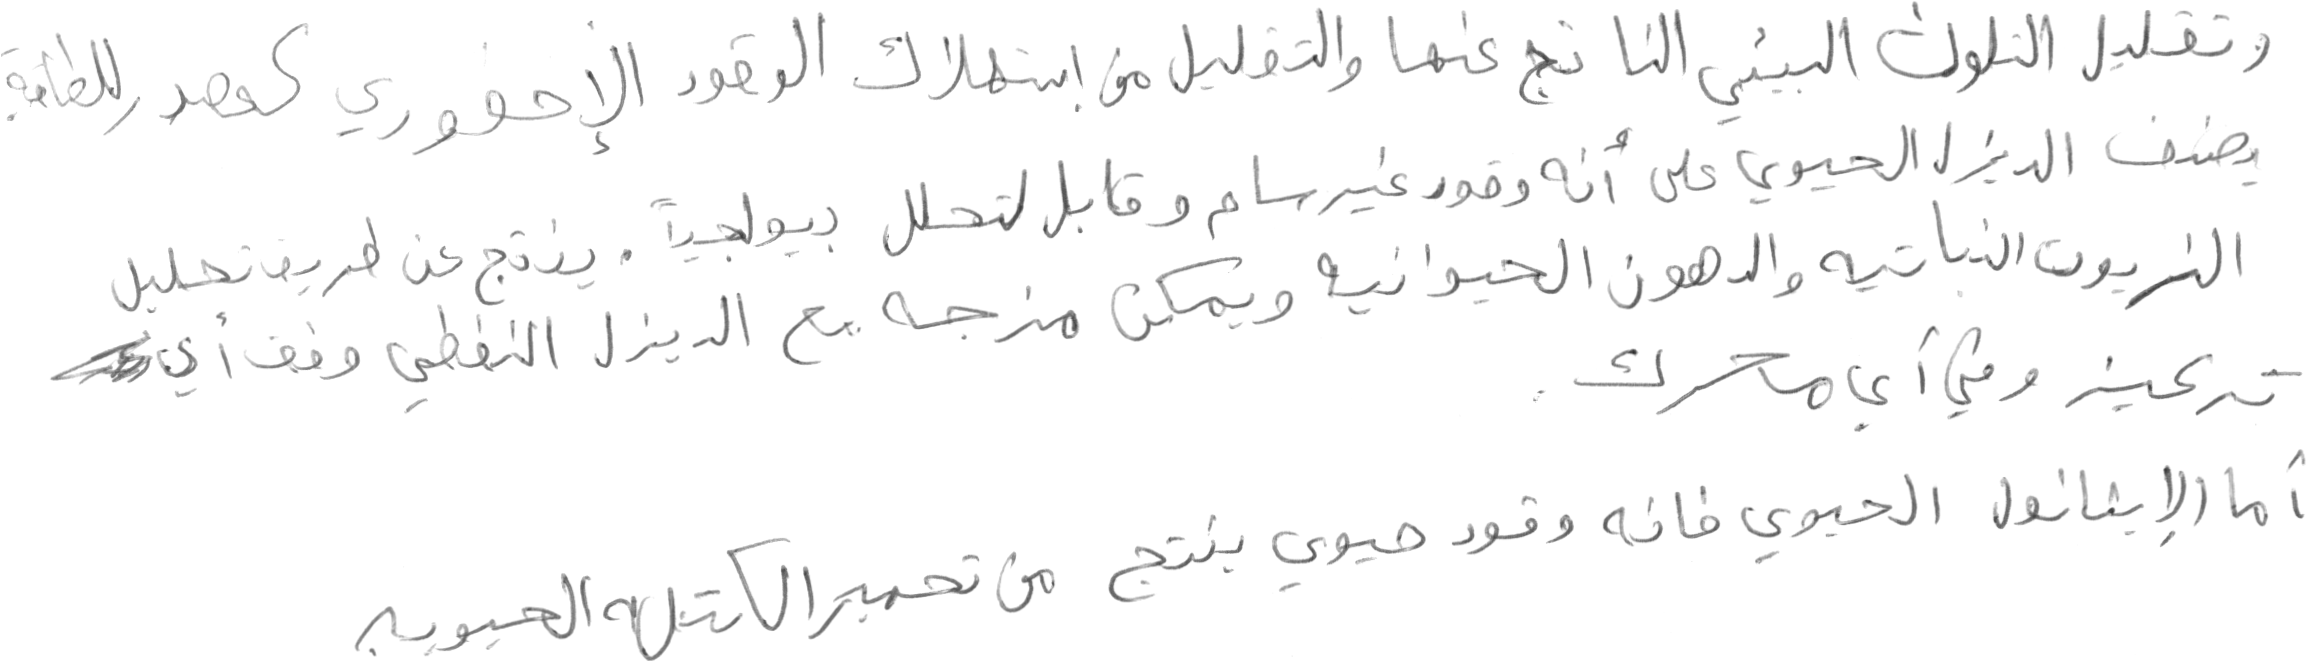 وتقليل التلوث البيئي الناتج عنها والتقليل من إستهلاك الوقود الإحفوري كمصدر للطاقة
يصنف الديزل الحيوي على أنه وقود غير سام وقابل لتحلل بيولجياً. ينتج عن طريق تحليل
الزيوت النباتيه والدهون الحيوانيه ويمكن مزجه مع الديزل النفطي وفق أي
تركيز وفي أي محرك.
أما الإيثانول الحيوي فانه وقود حيوي ينتج من تخمير الكتله الحيويه